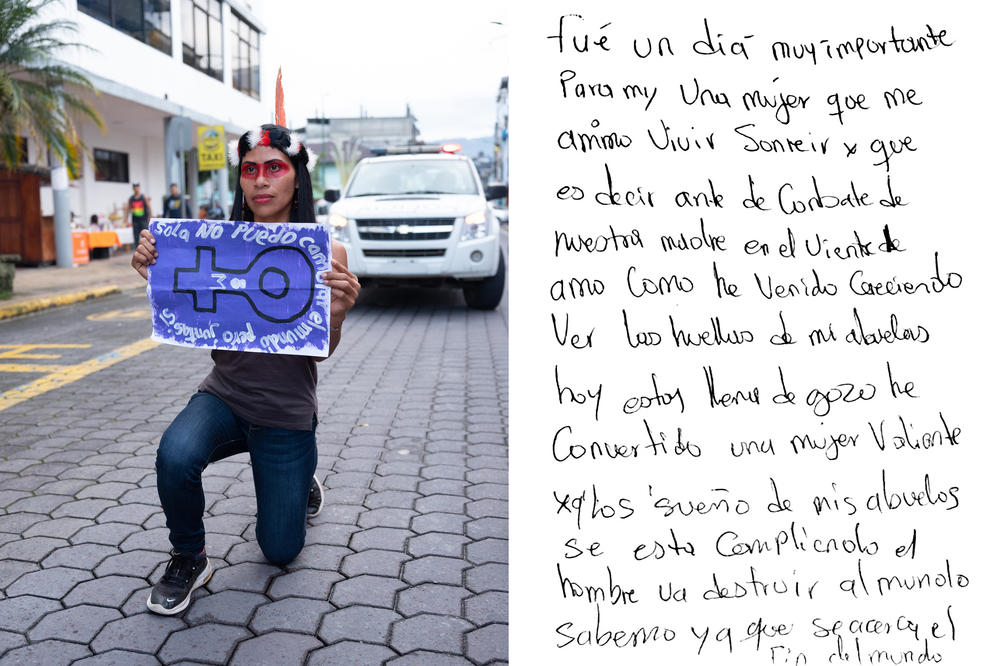 TAXI
Sola NO PUEDO cambiar el mundo pero juntas Sí
fué un diá muy importante
Para my Una mujer que me
animo Vivir Sonreir x que
es decir ante de Conbate de
nuestra madre en el Vientre de
amo Como he Venido Creciendo
Ver las huellas de mi abuelas
hoy estoy llena de gozo he
Convertido una mujer Valiente
xq' los sueño de mis abuelos
se esta Compliendo el
hombre va destruir al mundo
sabemo ya que se acerca el
Fin del mundo